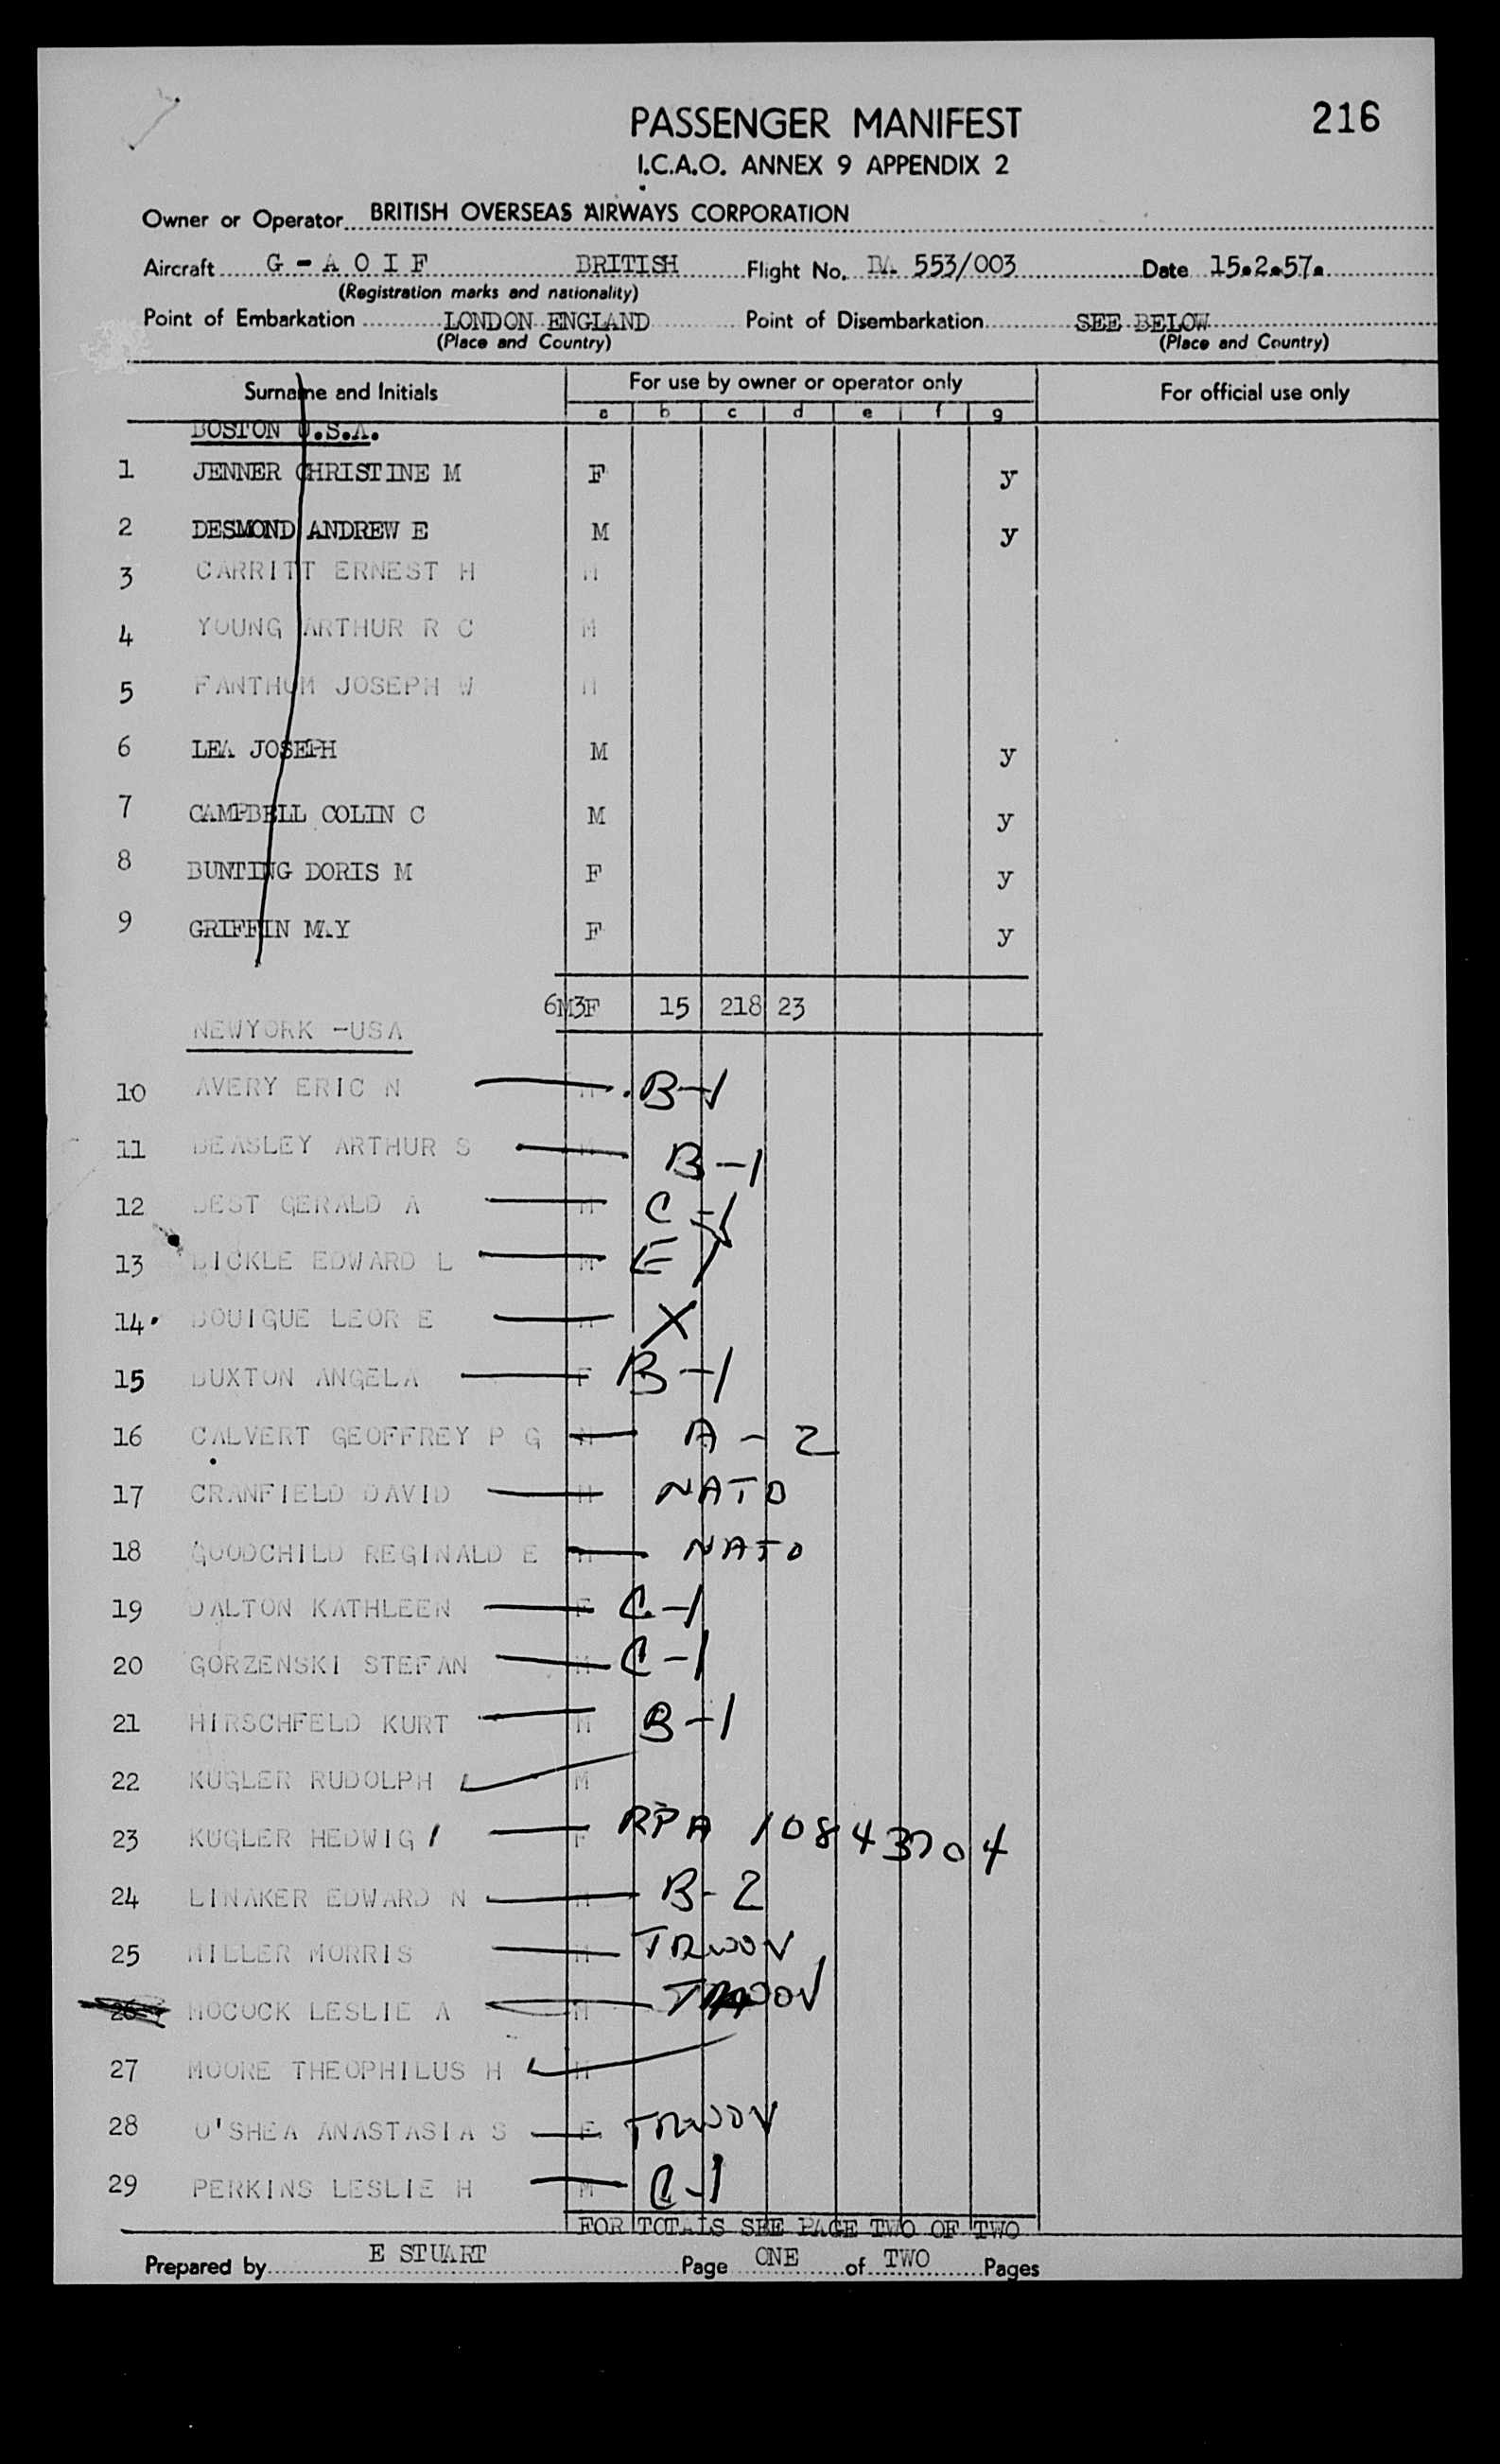 216
PASSENGER MANIFEST
I.C.A.O. ANNEX 9 APPENDIX 2
Owner or Operator BRITISH OVERSEAS AIRWAYS CORPORATION
Aircraft G - A O I F BRITISH Flight No. BA 553/003 Date 15.2.57.
(Registration marks and nationality)
Point of Embarkation LONDON ENGLAND Point of Disembarkation SEE BELOW
(Place and Country) (Place and Country)
Surname and Initials For use by owner or operator only For official use only
a b c d e f g
BOSTON U.S.A.
1 JENNER CHRISTINE M F y
2 DESMOND ANDREW E M y
3 CARRITT ERNEST H M
4 YOUNG ARTHUR R C M
5 FANTHOM JOSEPH W M
6 LEA JOSEPH M y
7 CAMPBELL COLIN C M y
8 BUNTING DORIS M F y
9 GRIFFIN MAY F y
6M3F 15 218 23
NEWYORK -USA
10 AVERY ERIC N M B-1
11 BEASLEY ARTHUR S M B-1
12 BEST GERALD A M C-1
13 BICKLE EDWARD L M E 1
14. BOUIGUE LEOR E M X
15 BUXTON ANGELA F B-1
16 CALVERT GEOFFREY P G M A-2
17 CRANFIELD DAVID M NATO
18 GOODCHILD REGINALD E M NATO
19 DALTON KATHLEEN F C-1
20 GORZENSKI STEFAN M C-1
21 HIRSCHFELD KURT M B-1
22 KUGLER RUDOLPH M
23 KUGLER HEDWIG F RPA 10843704
24 LINAKER EDWARD N M B-2
25 MILLER MORRIS M TRWOV
26 MOCOCK LESLIE A M TRWOV
27 MOORE THEOPHILUS H M
28 O'SHEA ANASTASIA S F TRWOV
29 PERKINS LESLIE H M C-1
FOR TOTALS SEE PAGE TWO OF TWO
Prepared by E STUART Page ONE of TWO Pages